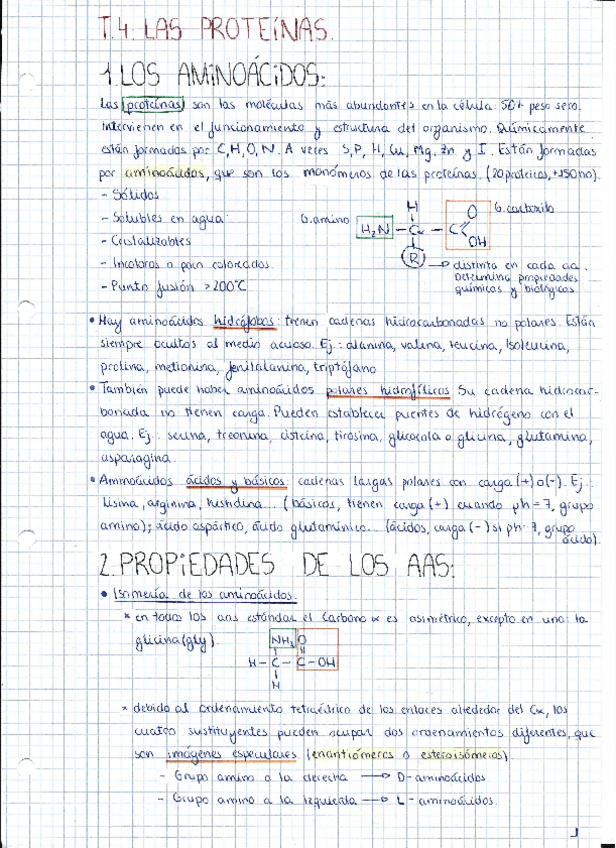 T.4. LAS PROTEÍNAS.
1. LOS AMINOÁCIDOS:
Las proteínas son las moléculas más abundantes en la célula: 50% peso seco.
Intervienen en el funcionamiento y estructura del organismo. Químicamente
están formadas por C, H, O, N. A veces S, P, H, Cu, Mg, Zn y I. Están formadas
por aminoácidos, que son los monómeros de las proteínas. (20 proteicos, +150 no).
- Sólidos
- Solubles en agua
- Cristalizables
- Incoloros o poco coloreados
- Punto fusión >200°C
G. amino
H₂N
H
Cα
C
O
OH
G. carboxilo
R
→ distinta en cada aa.
Determina propiedades
químicas y biológicas
• Hay aminoácidos hidrófobos: tienen cadenas hidrocarbonadas no polares. Están
siempre ocultos al medio acuoso. Ej.: alanina, valina, leucina, isoleucina,
prolina, metionina, fenilalanina, triptófano
• También puede haber aminoácidos polares hidrofílicos. Su cadena hidrocar-
bonada no tienen carga. Pueden establecer puentes de hidrógeno con el
agua. Ej: serina, treonina, cisteína, tirosina, glicocola o glicina, glutamina,
asparagina.
• Aminoácidos ácidos y básicos: cadenas largas polares con carga (+) o (-). Ej:
lisina, arginina, histidina... (básicos, tienen carga (+) cuando ph = 7, grupo
amino); ácido aspártico, ácido glutamínico... (ácidos, carga (-) si ph=7, grupo
ácido).
2. PROPIEDADES DE LOS AAS:
• Isomería de los aminoácidos.
* en todos los aas estándar el Carbono α es asimétrico, excepto en uno: la
glicina (gly).
NH₂ O
H - C - C - OH
H
* debido al ordenamiento tetraédrico de los enlaces alrededor del Cα, los
cuatro sustituyentes pueden ocupar dos ordenamientos diferentes, que
son imágenes especulares (enantiómeros o esteroisómeros).
- Grupo amino a la derecha → D-aminoácidos
- Grupo amino a la izquierda → L-aminoácidos.
1